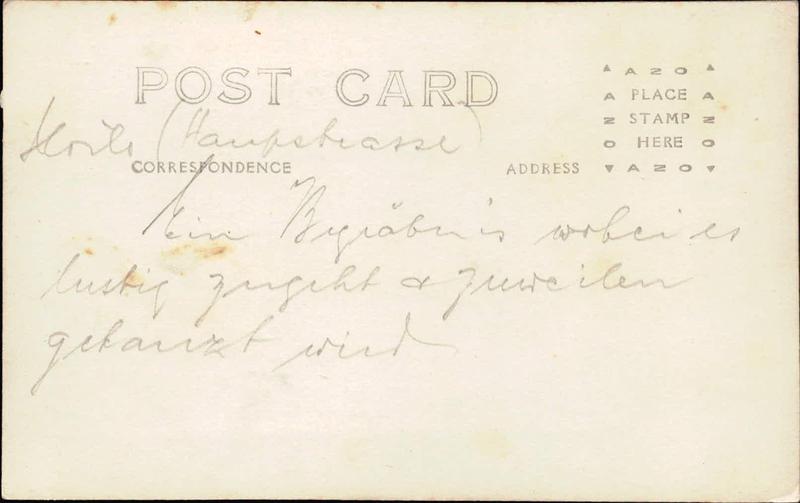 POST CARD
AZO
PLACE
STAMP
HERE
AZO
(Haupstrasse)
CORRESPONDENCE
ADDRESS
Ein Bgräbnis wobei es
lustig zugeht & zuweilen
getanzt wird